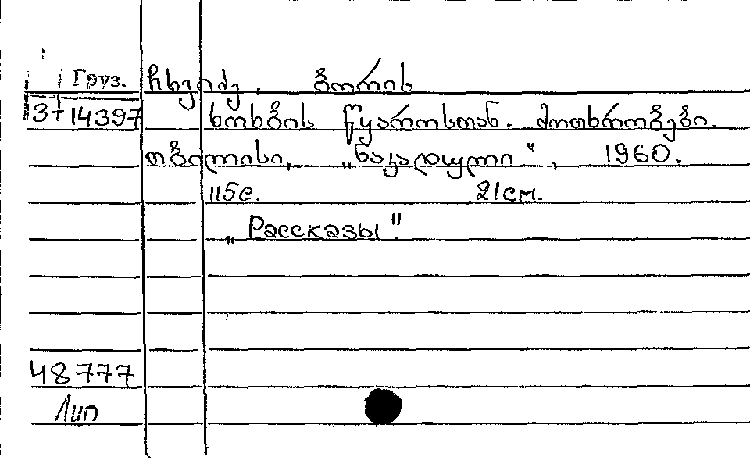 Груз. ჩხეიძე, ბორის
3-14397 ხოხბის წყაროსთან. მოთხრობები.
თბილისი, „ნაკადული“, 1960.
115с. 21см.
„Рассказы"
48777
Лип